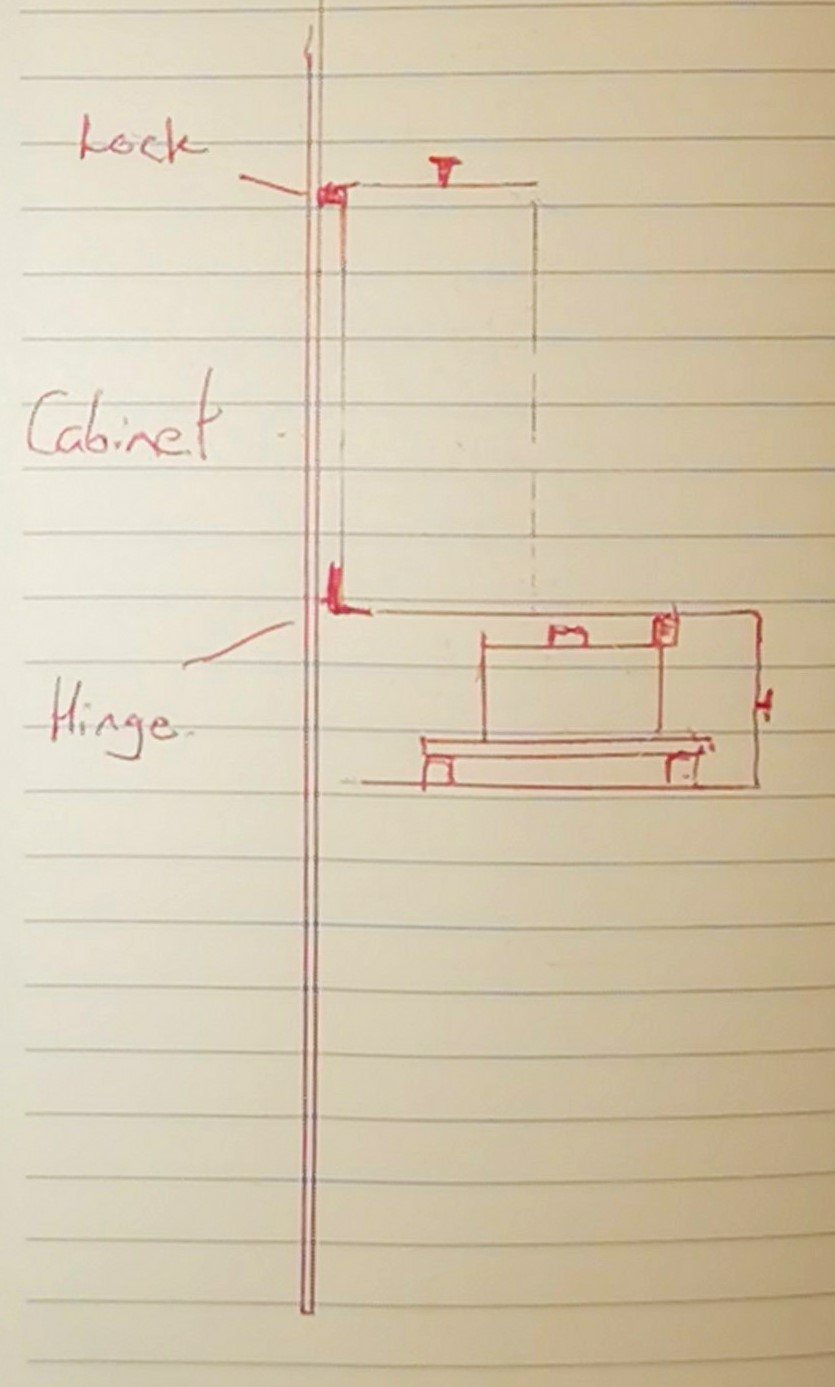 Lock
Cabinet
Hinge.